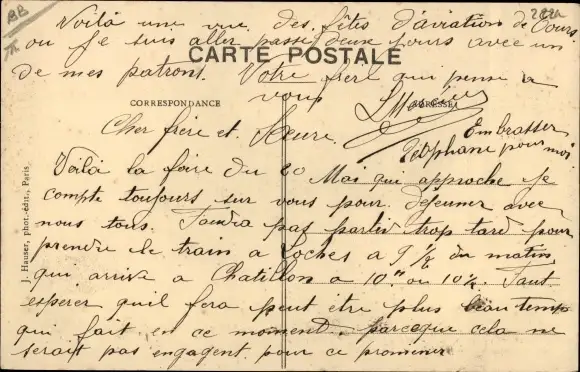 BB
Voilà une vue des fêtes d'aviation de Tours
ou Je suis aller passé deux jours avec un
CARTE POSTALE
de mes patrons. Votre frère qui pense a
vous
CORRESPONDANCE
ADRESSE
Cher frère et Soeure.
Embrasser
Stéphane pour moi
Voilà la foire du 20 Mai qui approche Je
compte toujours sur vous pour déjeuner avec
nous tous. Faudra pas partir trop tard pour
prendre le train a Loches a 9 1/2 du matin
qui arrive a Chatillon a 10" ou 10 1/2. Faut
esperer quil fera peut être plus beau temps
qui fait en ce moment, parceque cela ne
serait pas engagent pour ce promener
J. Hauser, phot.-édit., Paris